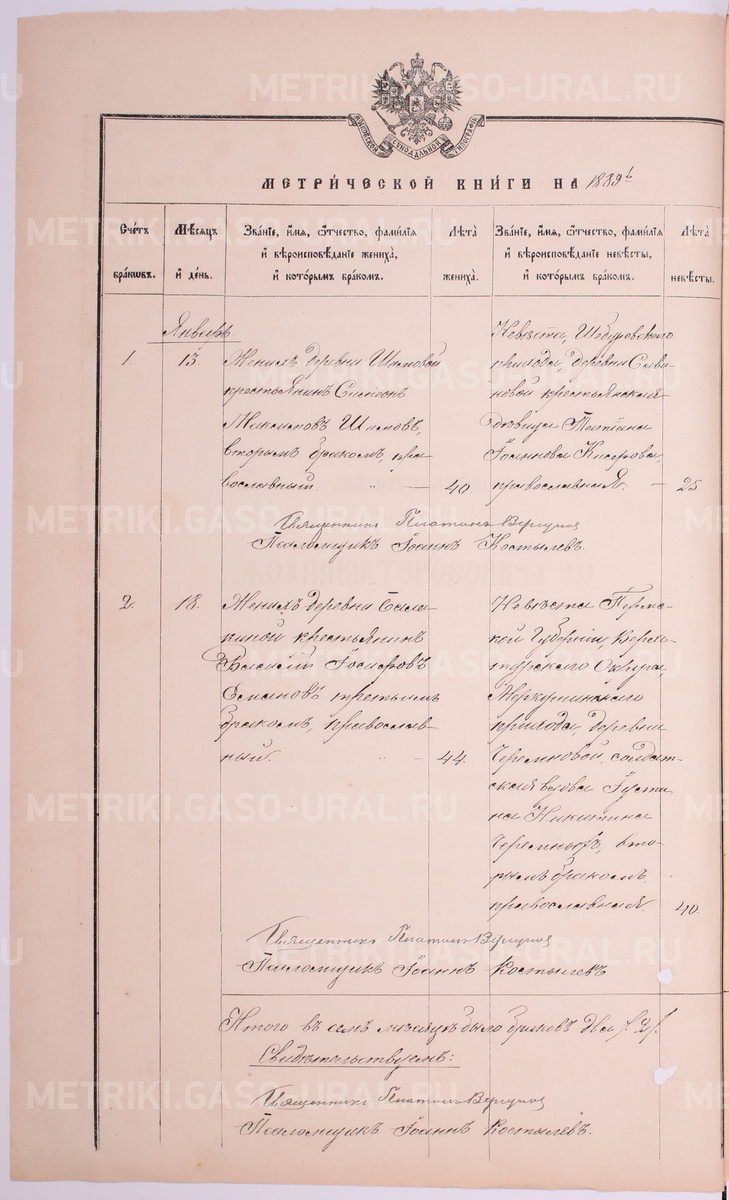 МОСКОВСКОЙ СѴНОДАЛЬНОЙ ТИПОГРАФІИ
МЕТРИЧЕСКОЙ КНИГИ НА 1889 г.
Счетъ браковъ.
Мѣсяцъ и день.
Званіе, имя, отчество, фамилія и вѣроисповѣданіе жениха, и которымъ бракомъ.
Лѣта жениха.
Званіе, имя, отчество, фамилія и вѣроисповѣданіе невѣсты, и которымъ бракомъ.
Лѣта невѣсты.
Январь
1.
13.
Женихъ деревни Шамовой
крестьянинъ Симеонъ
Максимовъ Шамовъ
вторымъ бракомъ, пра
вославный.
40
Невѣста,
прихода, деревни
новой крестьянская
дѣвица Татіана
Іоаннова
православная.
25
Священникъ Платонъ
Псаломщикъ Іоаннъ Костылевъ.
2.
18.
Женихъ деревни
крестьянинъ
Василій Іосифовъ
третьимъ
бракомъ, православ-
ный.
44.
Невѣста Пермс-
кой Губерніи, Верхо-
турскаго Округа,
Меркушинскаго
прихода, деревни
Черемновой, солдат-
ская вдова Іусти
на Никитина
вто-
рымъ бракомъ,
православная.
40.
Священникъ Платонъ
Псаломщикъ Іоаннъ Костылевъ
Итого въ семъ мѣсяцѣ было браковъ два /2/.
Свидѣтельствуемъ:
Священникъ Платонъ
Псаломщикъ Іоаннъ Костылевъ.
METRIKI.GASO-URAL.RU